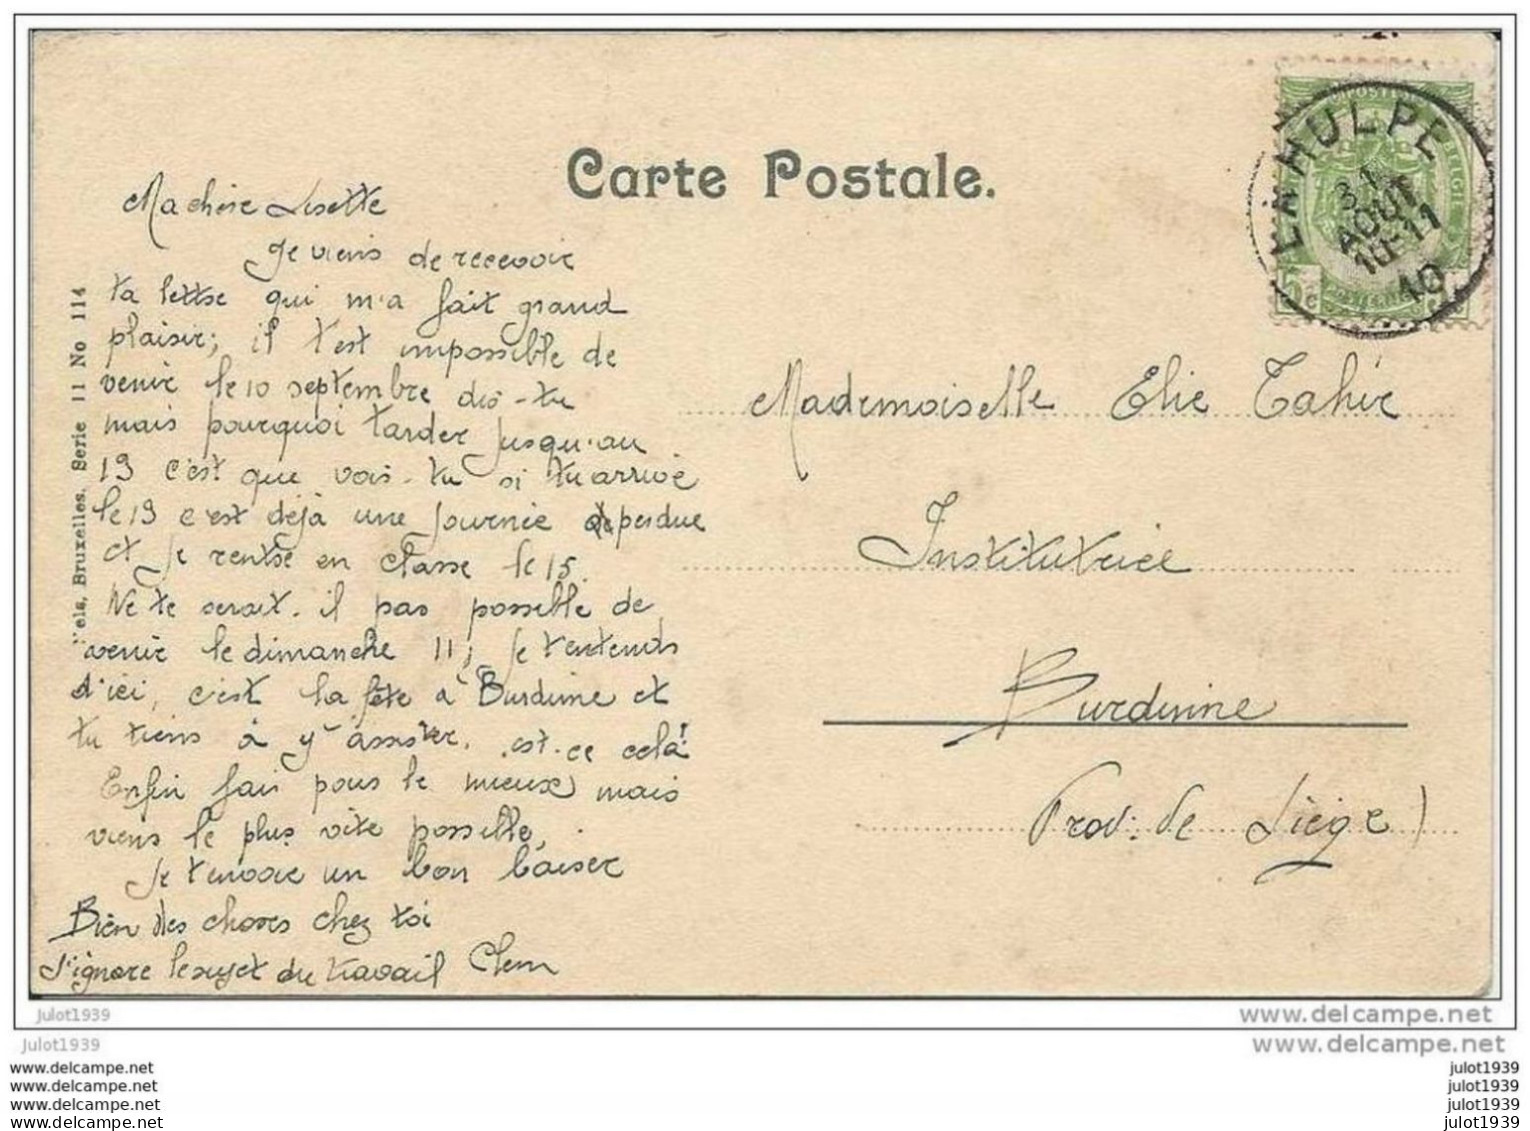 Carte Postale.
LA HULPE
31
AOUT
10-11
10
Ma chère Lisette
Je viens de recevoir
ta lettre qui m'a fait grand
plaisir; il t'est impossible de
venir le 10 septembre dis-tu
mais pourquoi tarder jusqu'au
19 c'est que vois-tu si tu arrive
le 19 c'est déjà une journée perdue
et je rentre en classe le 15.
Ne te serait-il pas possible de
venir le dimanche 11; je t'entends
d'ici, c'est la fête à Burdinne et
tu tiens à y assister, est-ce cela!
Enfin fais pour le mieux mais
viens le plus vite possible.
Je t'envoie un bon baiser
Bien des choses chez toi
J'ignore le sujet du travail Clem
Mademoiselle Elie Tahir
Institutrice
Burdinne
Prov. de Liège)
els, Bruxelles. Serie 11 No 114
julot1939
www.delcampe.net
julot1939
www.delcampe.net
www.delcampe.net
julot1939
www.delcampe.net
julot1939
www.delcampe.net
julot1939
www.delcampe.net
julot1939